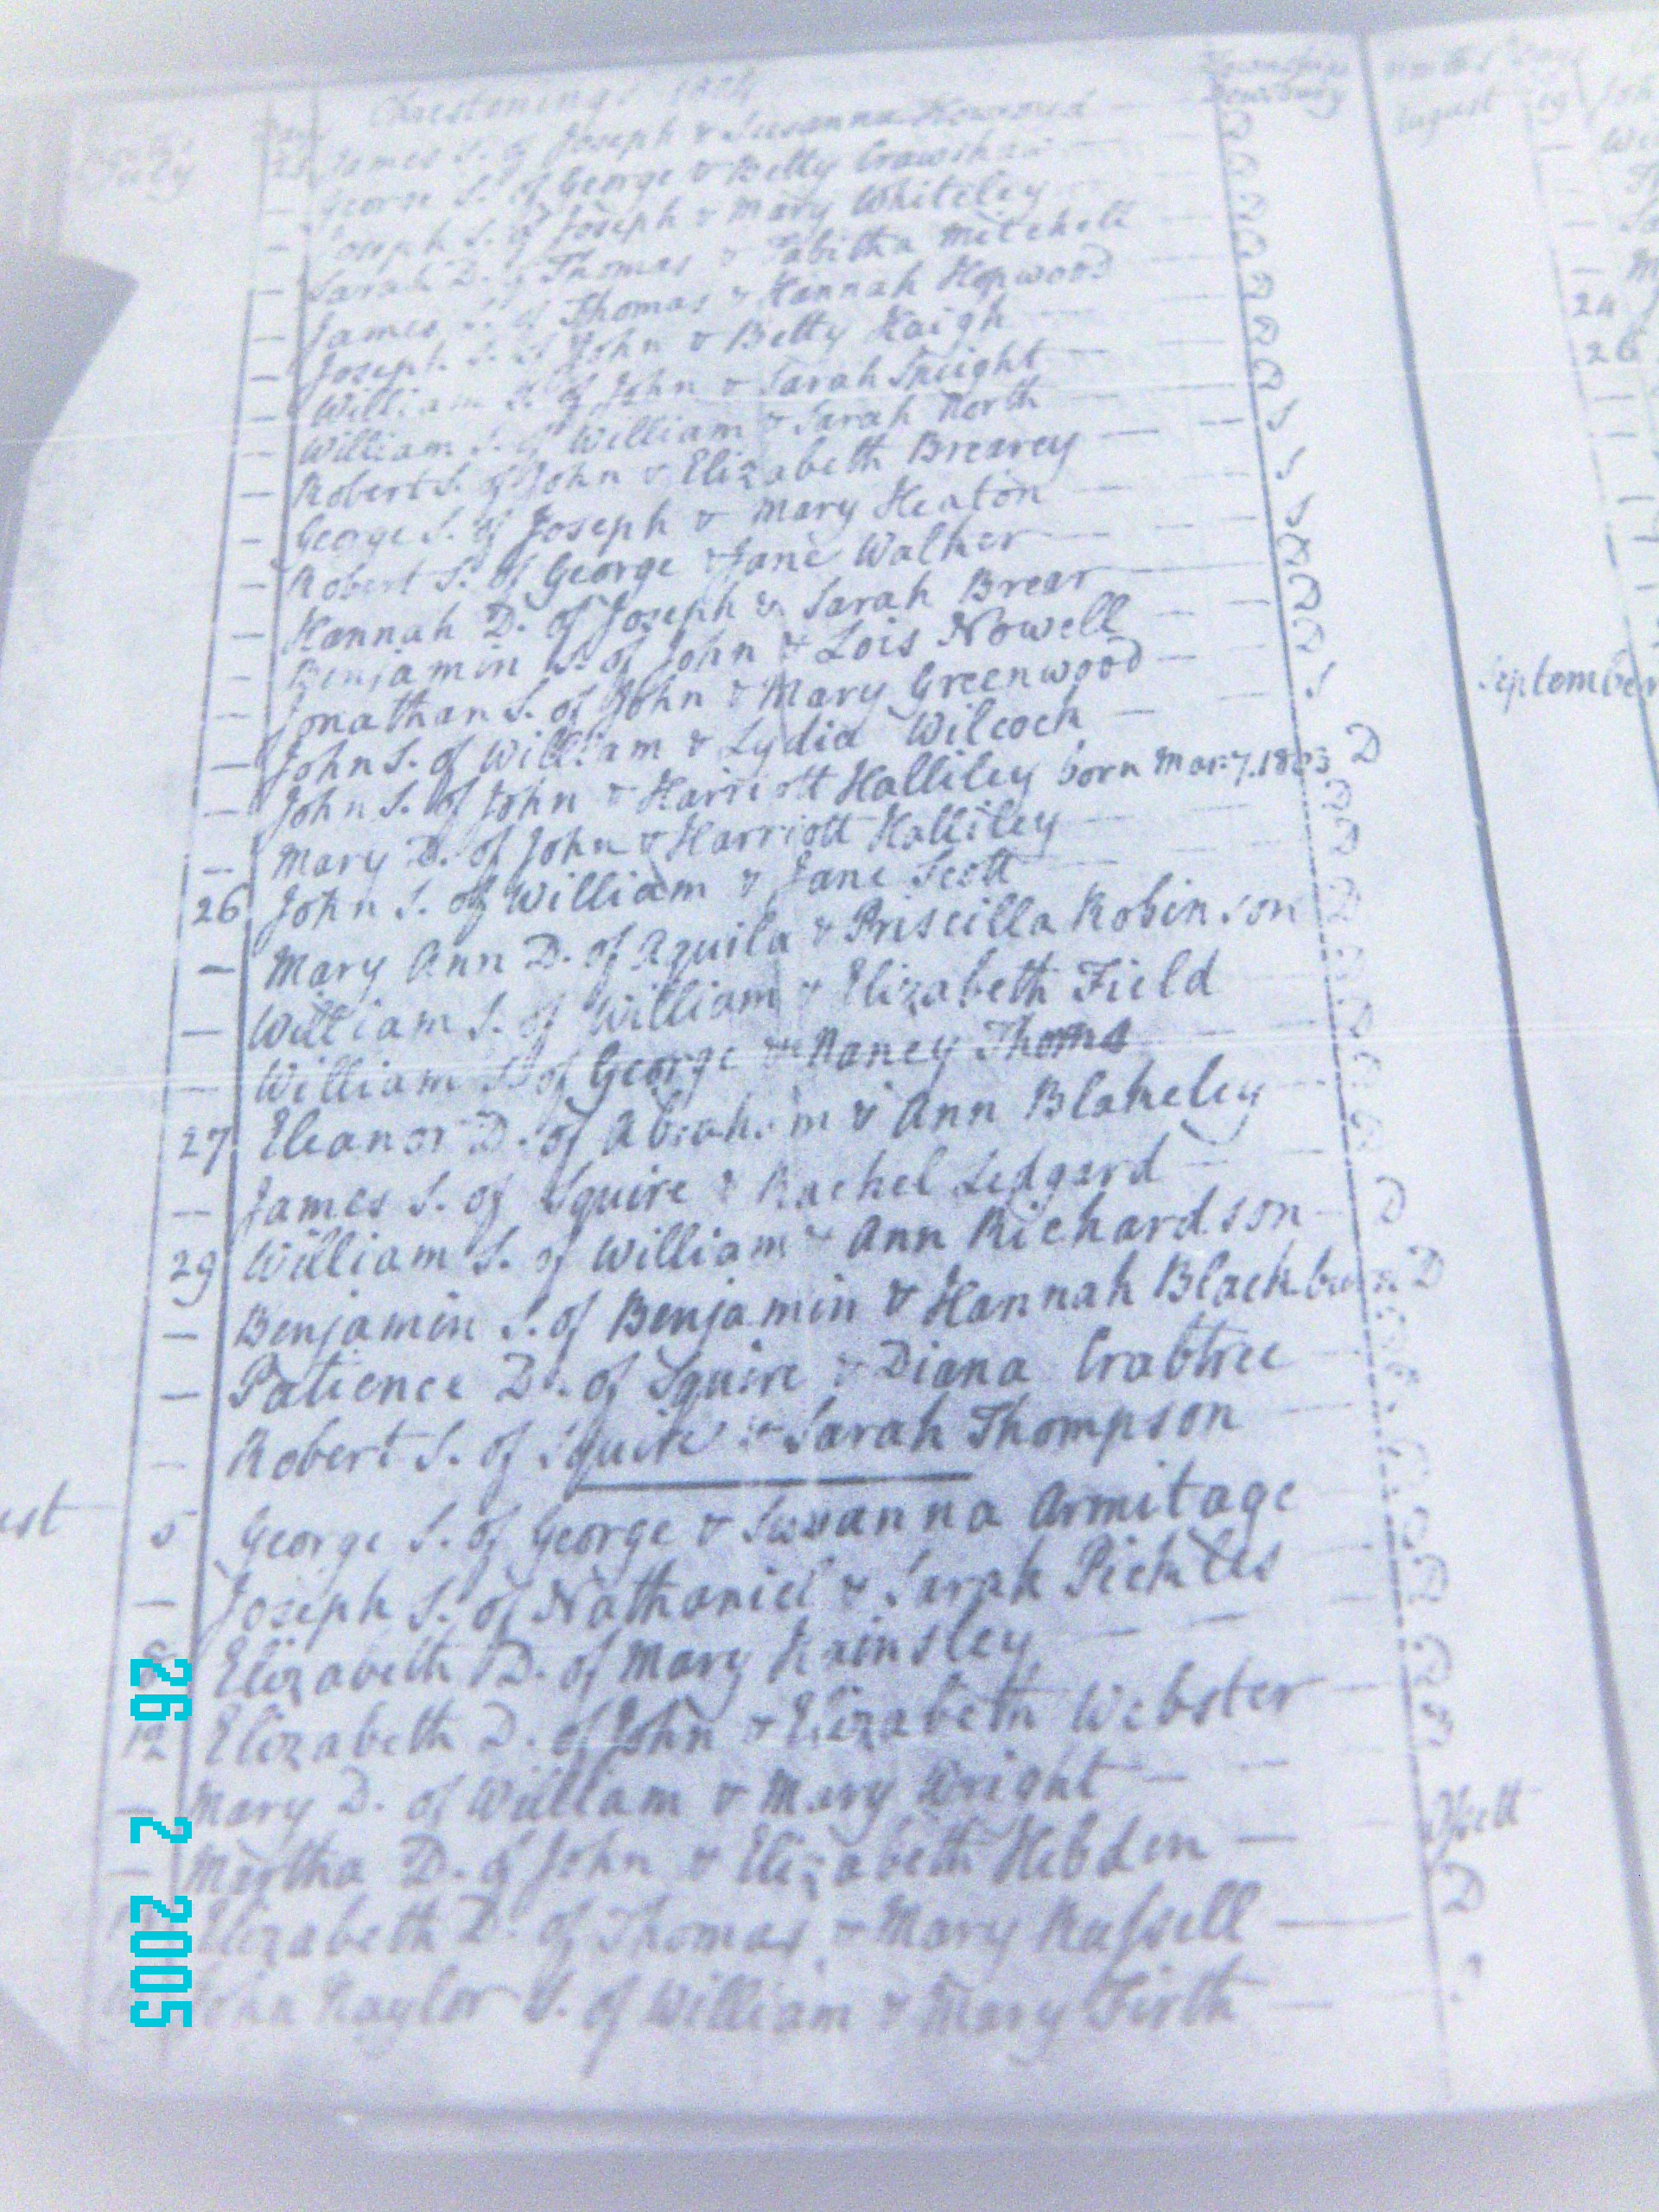 Christenings 1804 Townships
July 25 James S. of Joseph & Susanna Dewsbury D
— George S. of George & Betty Crawshaw — D
— Joseph S. of Joseph & Mary Whiteley — D
— Sarah D. of Thomas & Tabitha Mitchell — D
— James S. of Thomas & Hannah Hopwood — D
— Joseph S. of John & Betty Haigh — D
— William S. of John & Sarah Speight — D
— William S. of William & Sarah North — S
— Robert S. of John & Elizabeth Brearey — — S
— George S. of Joseph & Mary Heaton — — S
— Robert S. of George & Jane Walker — — D
— Hannah D. of Joseph & Sarah Brear — D
— Benjamin S. of John & Lois Nowell — D
— Jonathan S. of John & Mary Greenwood — S
— John S. of William & Lydia Wilcock —
— John S. of John & Harriott Halliley born Mar. 7. 1803 D
— Mary D. of John & Harriott Halliley — D
26 John S. of William & Jane Scott — D
— Mary Ann D. of Aquila & Priscilla Robinson D
— William S. of William & Elizabeth Field
— William S. of George & Nancy Thoms D
27 Eleanor D. of Abraham & Ann Blakeley —
— James S. of Squire & Rachel Ledgard — D
29 William S. of William & Ann Richardson — D
— Benjamin S. of Benjamin & Hannah Blackburn D
— Patience D. of Squire & Diana Crabtree —
— Robert S. of Squire & Sarah Thompson —
5 George S. of George & Susanna Armitage
— Joseph S. of Nathaniel & Sarah Pickles — D
8 Elizabeth D. of Mary Hainsley — — D
12 Elizabeth D. of John & Elizabeth Webster — S
— Mary D. of William & Mary Wright — —
— Martha D. of John & Elizabeth Hebden — Ossett
Elizabeth D. of Thomas & Mary Russell — D
John Naylor S. of William & Mary Firth —
August 19
24
26
September
26 2 2005